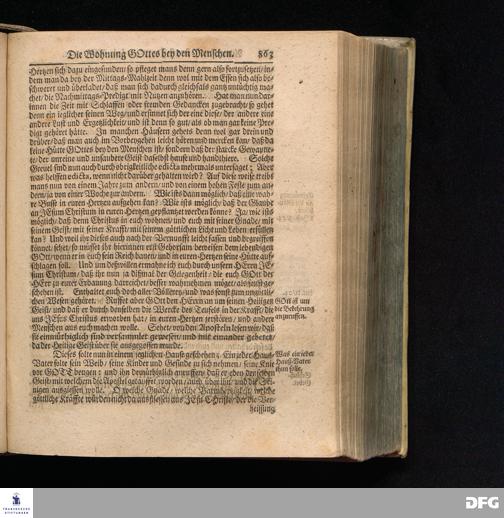 Die Wohnung GOttes bey den Menschen. 863
Hertzen sich dazu eingefunden/ so pfleget mans denn gern also fortzusetzen/ in-
dem man da bey der Mittags-Mahlzeit denn wol mit dem Essen sich also be-
schweret und überladet/ daß man sich dadurch gleichsals gantz untüchtig ma-
chet/ die Nachmittags-Predigt mit Nutzen anzuhören. Hat man nun dar-
innen die Zeit mit Schlaffen oder fremden Gedancken zugebracht/ so gehet
denn ein jeglicher seinen Weg/ und ersinnet sich der eine diese/ der andere eine
andere Lust und Ergetzlichkeit/ und ist denn so gut/ als ob man gar keine Pre-
digt gehöret hätte. In manchen Häusern gehets denn wol gar drein und
drüber/ daß man auch im Vorbeygehen leicht hören und mercken kan/ daß da
keine Hütte GOttes bey den Menschen ist/ sondern daß der starcke Gewapne-
te/ der unreine und unsaubere Geist daselbst hause und handthiere. Solche
Greuel sind nun auch durch obrigkeitliche edicta mehrmals untersaget; Aber
was helffen edicta, wenn nicht darüber gehalten wird? Auf diese weise treibet
mans nun von einem Jahre zum andern/ und von einem hohen Feste zum an-
dern/ ja von einer Woche zur andern. Wie ists dann möglich/ daß eine wah-
re Busse in euren Hertzen aufgehen kan? Wie ists möglich/ daß der Glaube
an JEsum Christum in euren Hertzen gepflantzet werden könne? Ja/ wie ists
möglich/ daß denn Christus in euch wohnen und euch mit seiner Gnade/ mit
seinem Geist/ mit seiner Krafft/ mit seinem göttlichen Licht und Leben erfüllen
kan? Und weil ihr dieses auch nach der Vernunfft leicht fassen und begreiffen
könnet/ sehet/ so müsset ihr hierinnen erst Gehorsam beweisen dem lebendigen
GOtt/ wenn er in euch sein Reich bauen/ und in euren Hertzen seine Hütte auf-
schlagen soll. Und um deßwillen ermahne ich euch durch unsern HErrn JE-
sum Christum/ daß ihr nun ja dißmal der Gelegenheit/ die euch GOtt der
HErr zu eurer Erbauung darreichet/ besser wahrnehmen möget/ als sonst ge-
schehen ist. Enthaltet euch doch aller Völlerey/ und was sonst zum unordent-
lichen Wesen gehöret. Ruffet aber GOtt den HErrn an um seinen Heiligen
Geist/ und daß er durch denselben die Wercke des Teufels in der Krafft/ die
uns JEsus Christus erworben hat/ in euren Hertzen zerstören/ und andere
Menschen aus euch machen wolle. Sehet/ von den Aposteln lesen wir/ daß
sie einmüthiglich sind versammlet gewesen/ und mit einander gebetet/
da der Heilige Geist über sie ausgegossen wurde.
Dieses solte nun in einem jeglichen Hause geschehen; Ein jeder Haus-
Vater solte sein Weib/ seine Kinder und Gesinde zu sich nehmen/ seine Knie
vor GOTT beugen/ und ihn demüthiglich anruffen/ daß er eben denselben
Geist/ mit welchem die Apostel getauffet worden/ auch über ihn/ und die Sei-
nigen ausgiessen wolle. O welche Gnade/ welche Barmhertzigkeit/ welche
göttliche Kräffte würden nicht da ausfliessen aus JEsu CHristo/ der die Ver-
heissung
GOtt ist um
die Bekehrung
anzuruffen.
Was ein jeder
Hauß-Vater
thun solte.
FRANCKESCHE
STIFTUNGEN
DFG